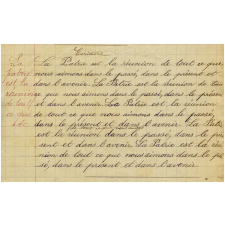 La Patrie est la réunion de tout ce que
nous aimons dans le passé, dans le présent et
dans l'avenir. La Patrie est la réunion de tout
ce que nous aimons dans le passé, dans le présent
et dans l'avenir. La Patrie est la réunion
de tout ce que nous aimons dans le passé,
dans le présent et dans l'avenir. La Patrie
est la réunion dans le passé, dans le pré-
sent et dans l'avenir. La Patrie est la réu-
nion de tout ce que nous aimons dans le pas-
sé, dans le présent et dans l'avenir.